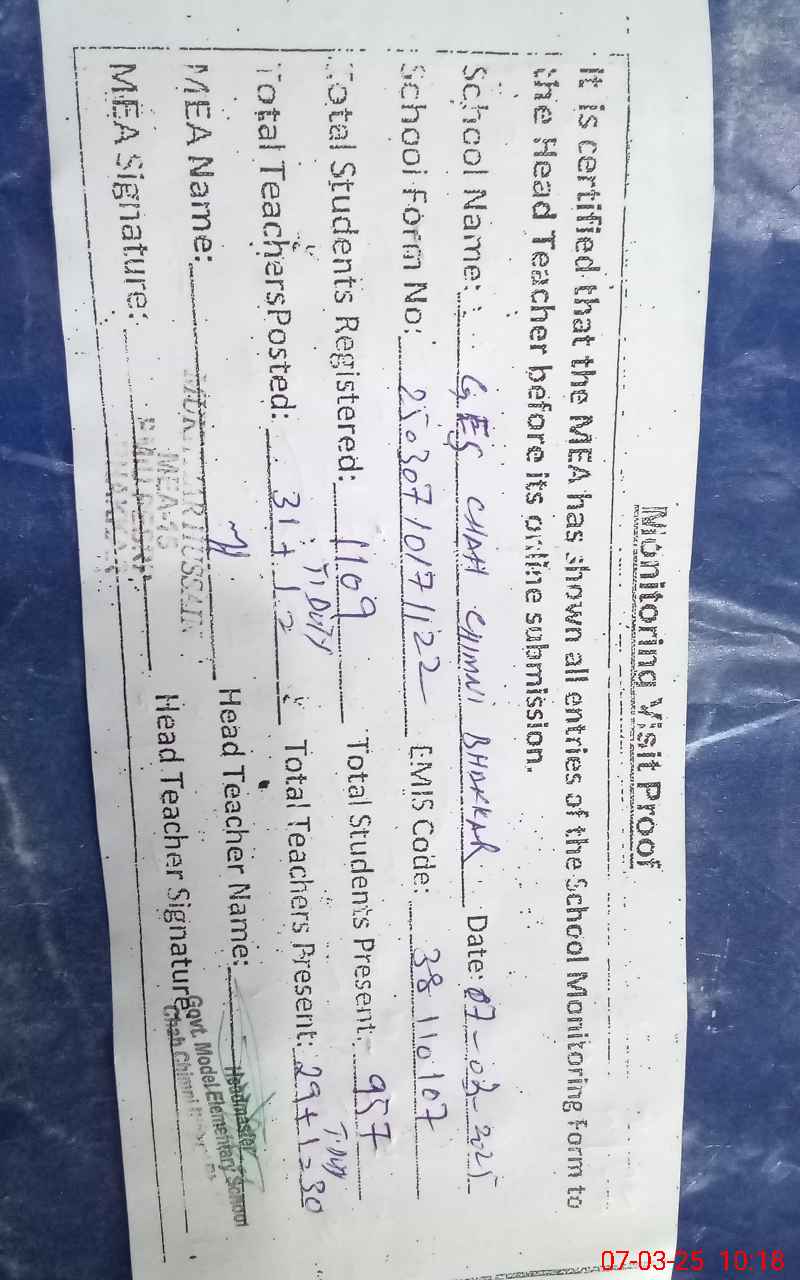 Monitoring Visit Proof
It is certified that the MEA has shown all entries of the School Monitoring form to
the Head Teacher before its online submission.
School Name: GES CHAH CHIMNI BHAKKAR Date: 07-03-2025
School Form No: 25030710171122 EMIS Code: 38110107
Total Students Registered: 1109 Total Students Present: 957
T/DUTY T.Duty
Total Teachers Posted: 31+1 Total Teachers Present: 29+1=30
MEA Name: HUSSAIN Head Teacher Name: Headmaster
MEA Signature: MEA-15 Head Teacher Signature: Govt. Model Elementary School
Chah Chimni
07-03-25 10:18